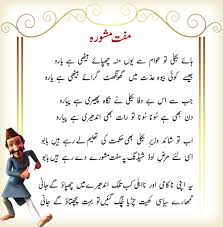 مفت مشورہ
ہائے بجلی تو عوام سے یوں منہ چھپائے بیٹھی ہے یارو
جیسے کوئی بیوہ عدت میں گھونگھٹ گرائے بیٹھی ہے یارو
جب سے اس بے وفا بجلی نے نگاہ پھیری ہے پیارو
دن بھی ہے سُونا سُونا تو رات بھی اندھیری ہے پیارو
اب تو شائد وزیر بجلی بھی حکمت کی تعلیم لے رہے ہیں بابو
اسی لئے مرض لوڈ شیڈنگ پہ مفت مشورے دے رہے ہیں بابو
یہ اپنی ناکامی اور نااہلی کب تک اندھیرے میں چھپاؤ گے جانی
تمھارے سیاسی کھیت چڑیا چُگ گئیں تو بہت پچھتاؤ گے جانی